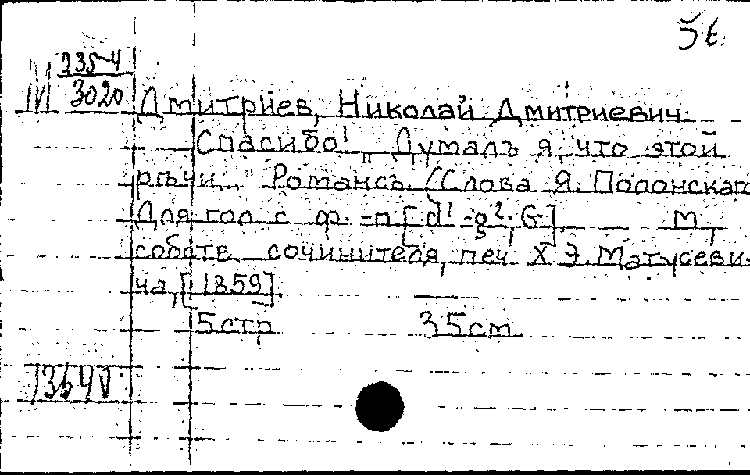 5б.
М 235-4
3020
Дмитриев, Николай Дмитриевич
Спасибо! „Думалъ я, что этой
рѣчи..." Романсъ /Слова Я. Полонскаго
Для гол с ф.-п [d¹-g²; G]. М,
собств. сочинителя, печ Х Э. Матусеви-
ча, [1859].
5 стр 35 см.